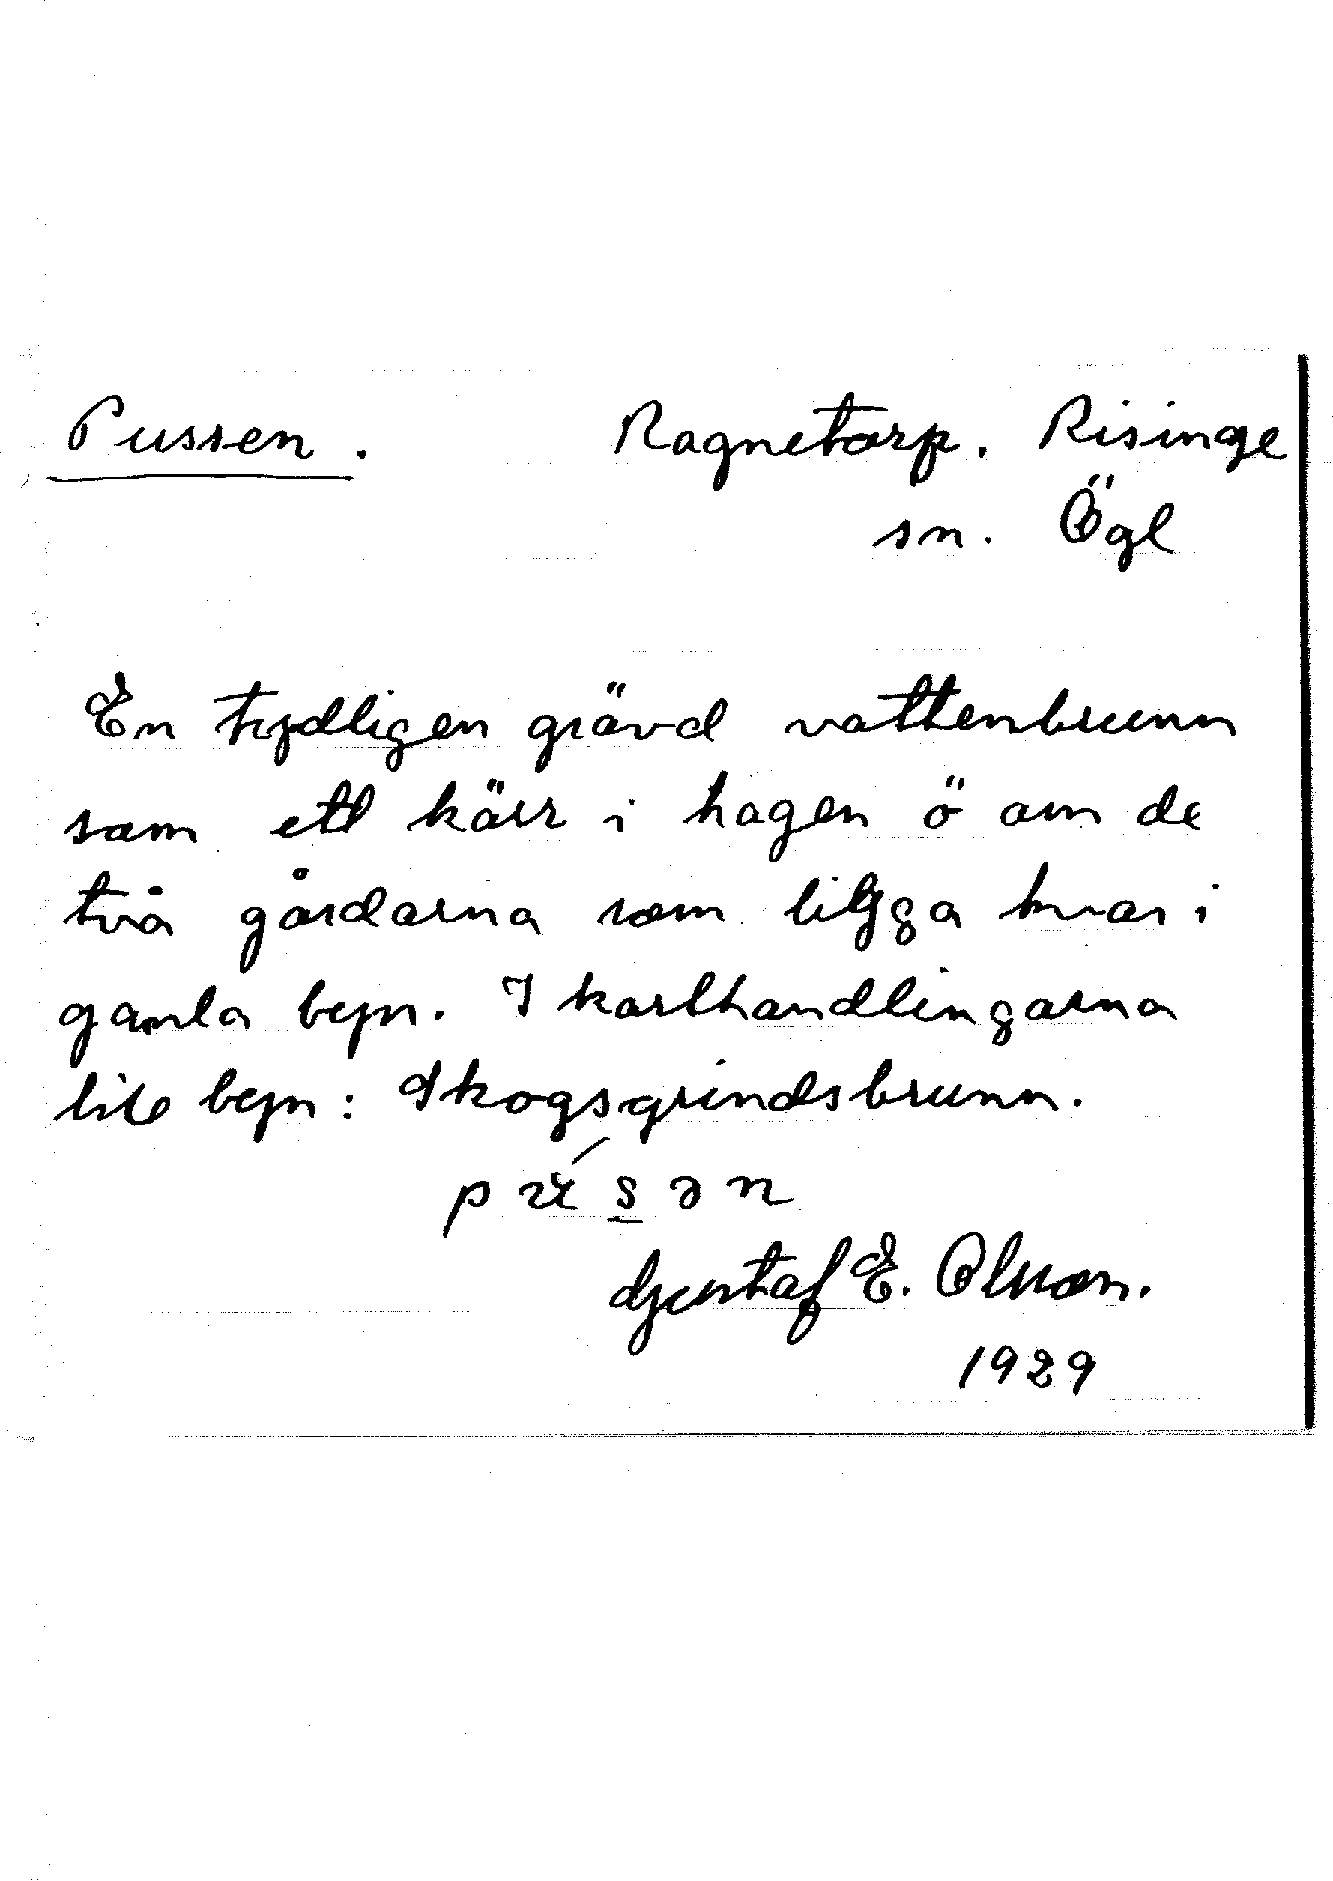 Pussen. Ragnetorp. Risinge
sn. Ögl
En tydligen grävd vattenbrunn
som ett kärr i hagen ö om de
två gårdarna som ligga kvar i
gamla byn. I karthandlingarna
lite byn: Skogsgrindsbrunn.
Gustaf E. Olsson.
1929